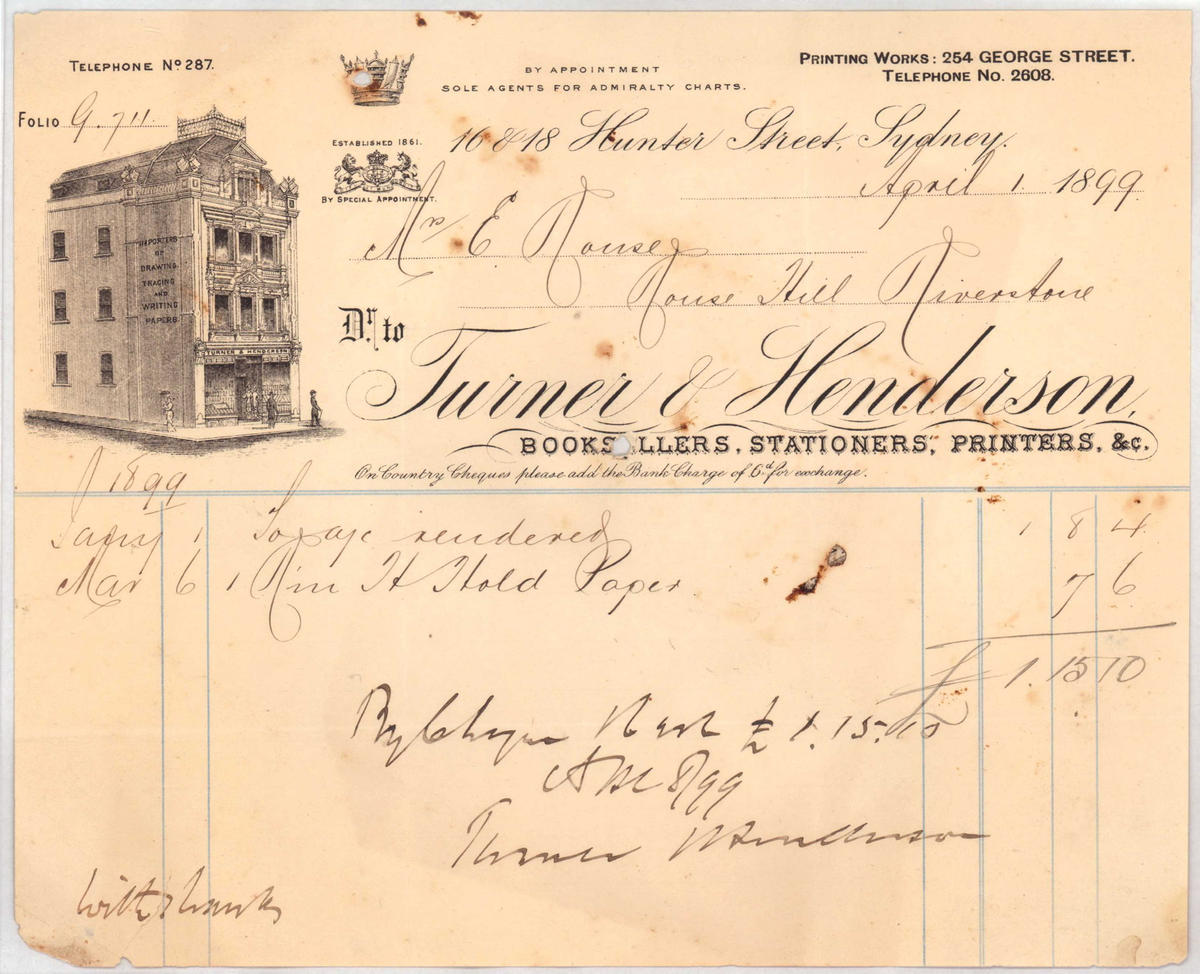 TELEPHONE No 287.
BY APPOINTMENT
SOLE AGENTS FOR ADMIRALTY CHARTS.
PRINTING WORKS: 254 GEORGE STREET.
TELEPHONE No. 2608.
FOLIO 9.711
ESTABLISHED 1861.
BY SPECIAL APPOINTMENT.
16 & 18 Hunter Street, Sydney.
April 1 1899
Mrs E Rouse
Rouse Hill Riverstone
IMPORTERS
OF
DRAWING
TRACING
AND
WRITING
PAPERS.
TURNER & HENDERSON
Dr. to
Turner & Henderson,
BOOKS LLERS, STATIONERS, PRINTERS, &c.
On Country Cheques please add the Bank Charge of 6d for exchange.
1899
Jany 1 To a/c rendered 1 8 4
Mar 6 1 Rm H Hold Paper 7 6
£ 1. 15 10
By Cheque £1.15.10
8/99
Turner & Henderson
With thanks